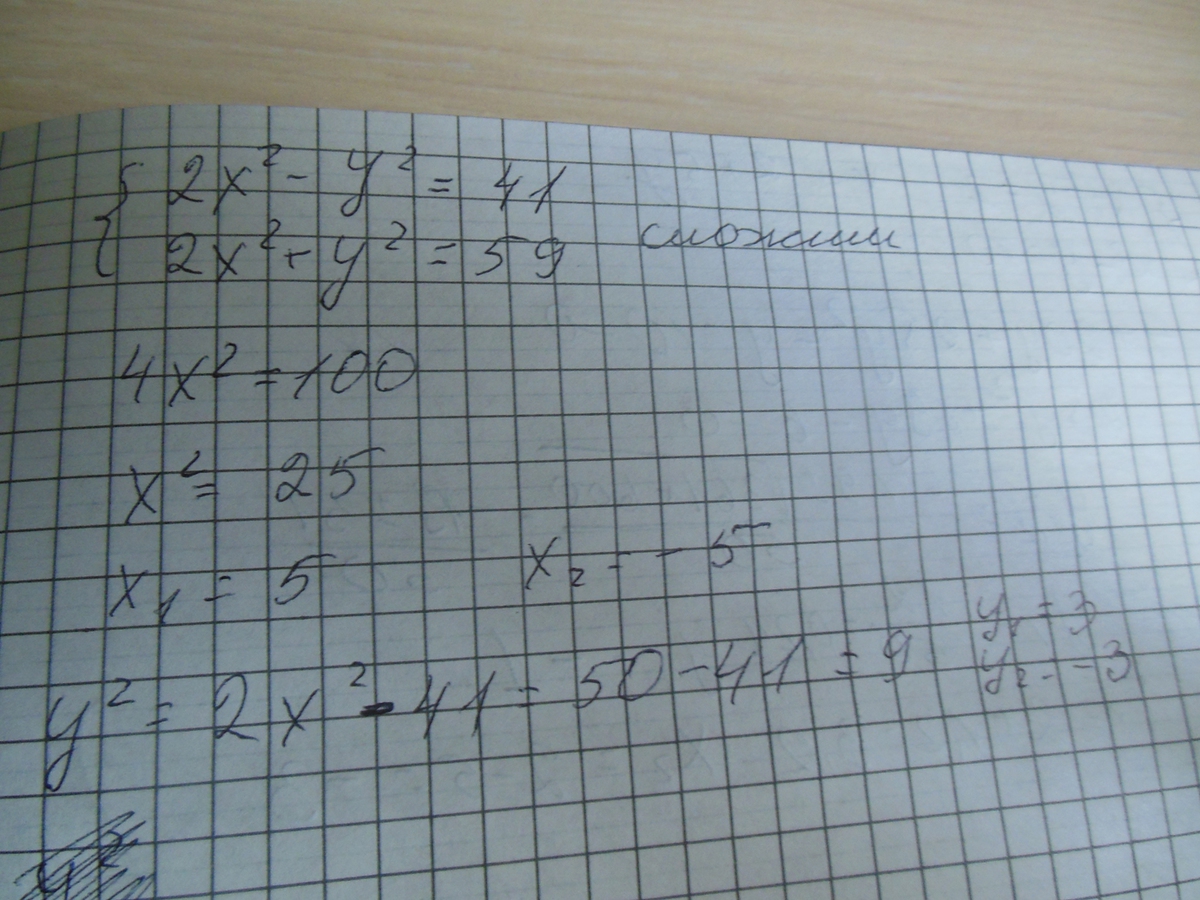 { 2x² - y² = 41
2x² + y² = 59 сложим
4x² = 100
x² = 25
x₁ = 5 x₂ = -5
y² = 2x² - 41 = 50 - 41 = 9 y₁ = 3
y₂ = -3